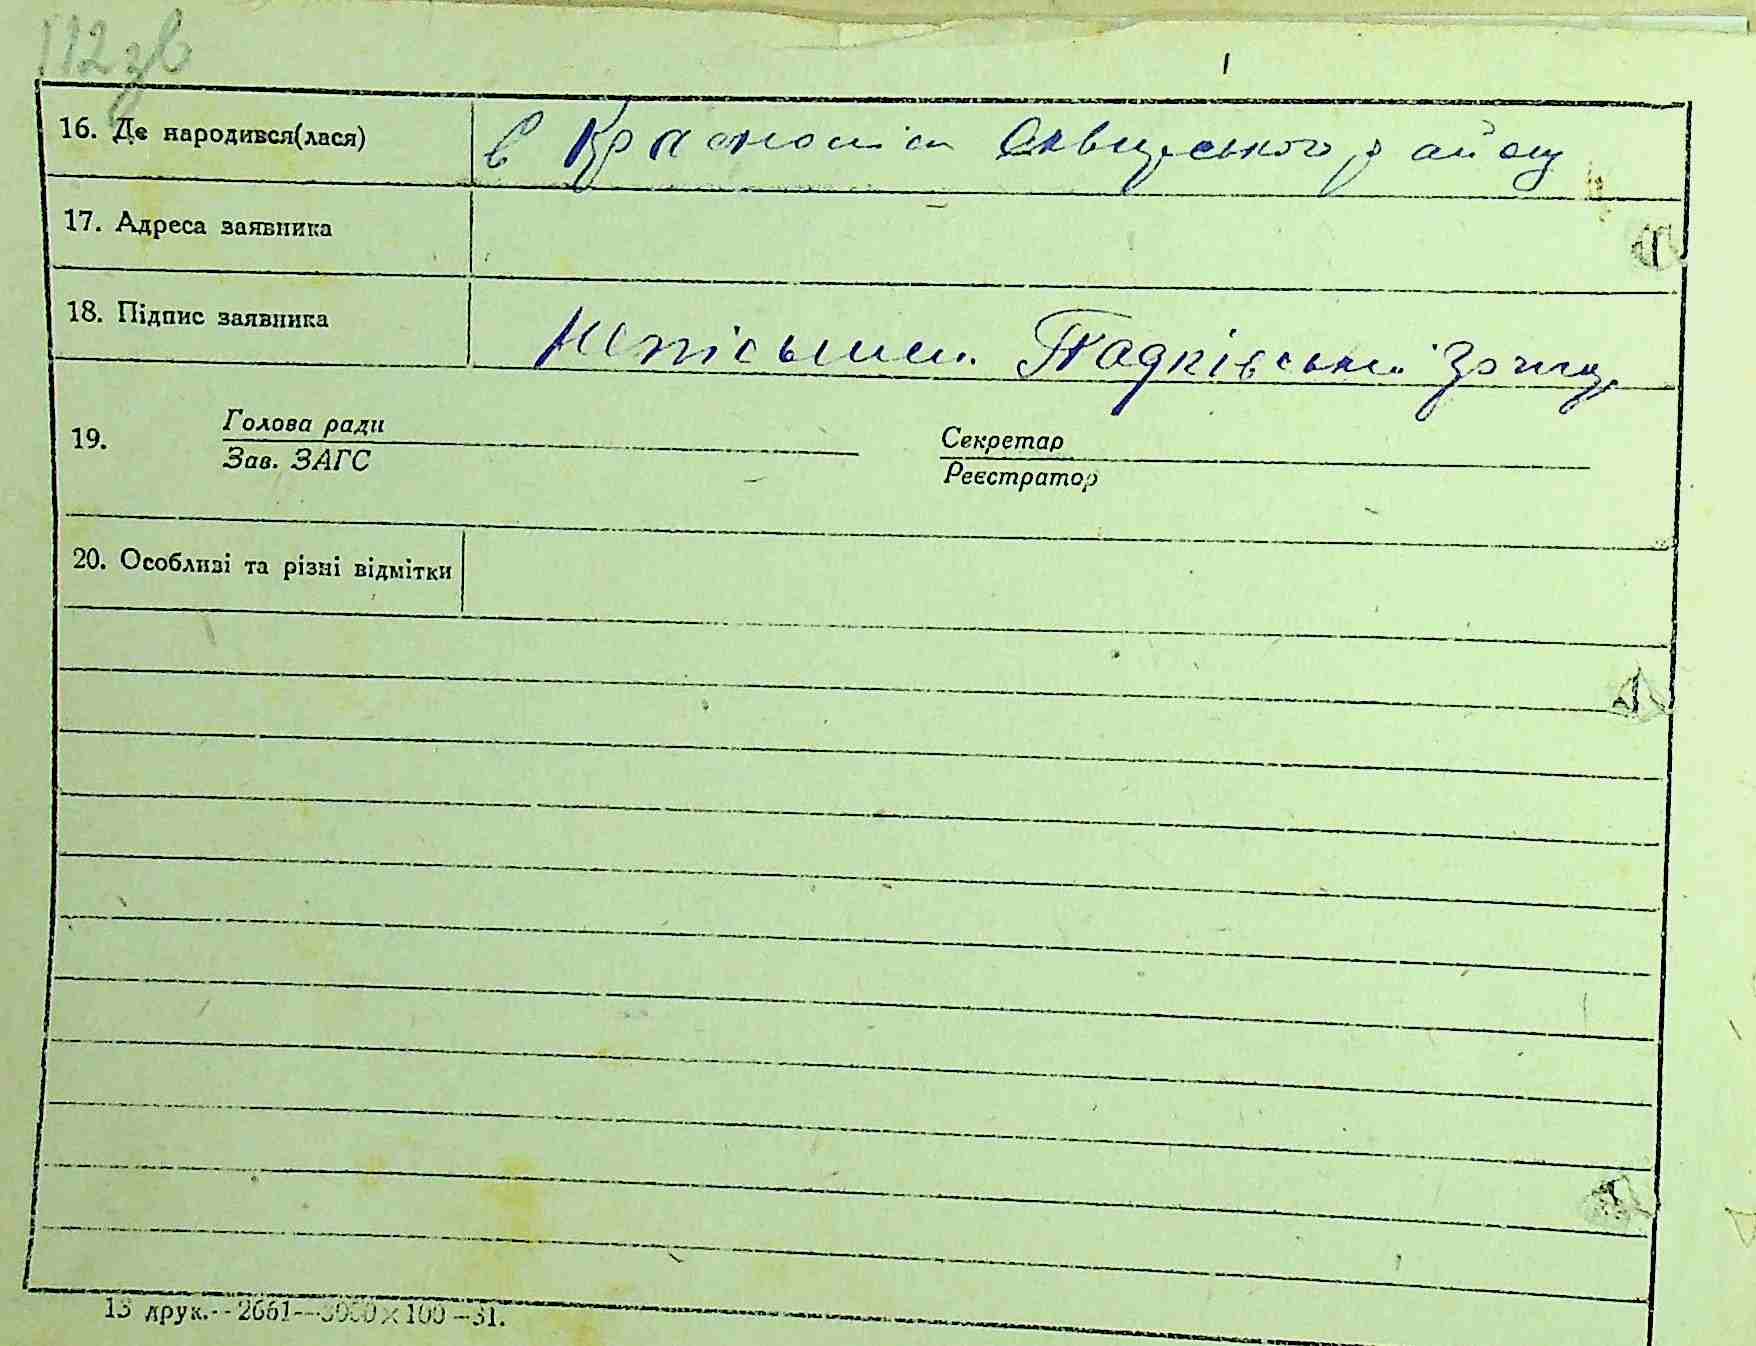 112зв
16. Де народився(лася) в Красноліси Сквирського району
17. Адреса заявника
18. Підпис заявника неписьмен.
19. Голова ради Секретар
Зав. ЗАГС Реєстратор
20. Особливі та різні відмітки
13 друк.--2661--3000×100-31.